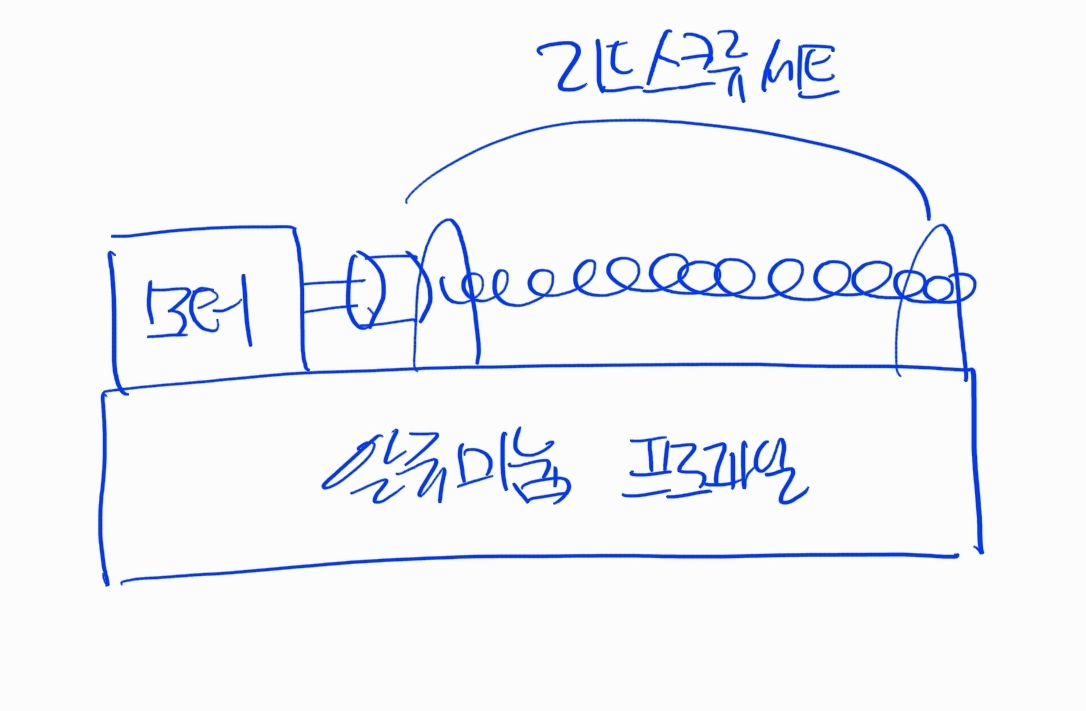 리드스크류 세트
모터
알류미늄 프로파일